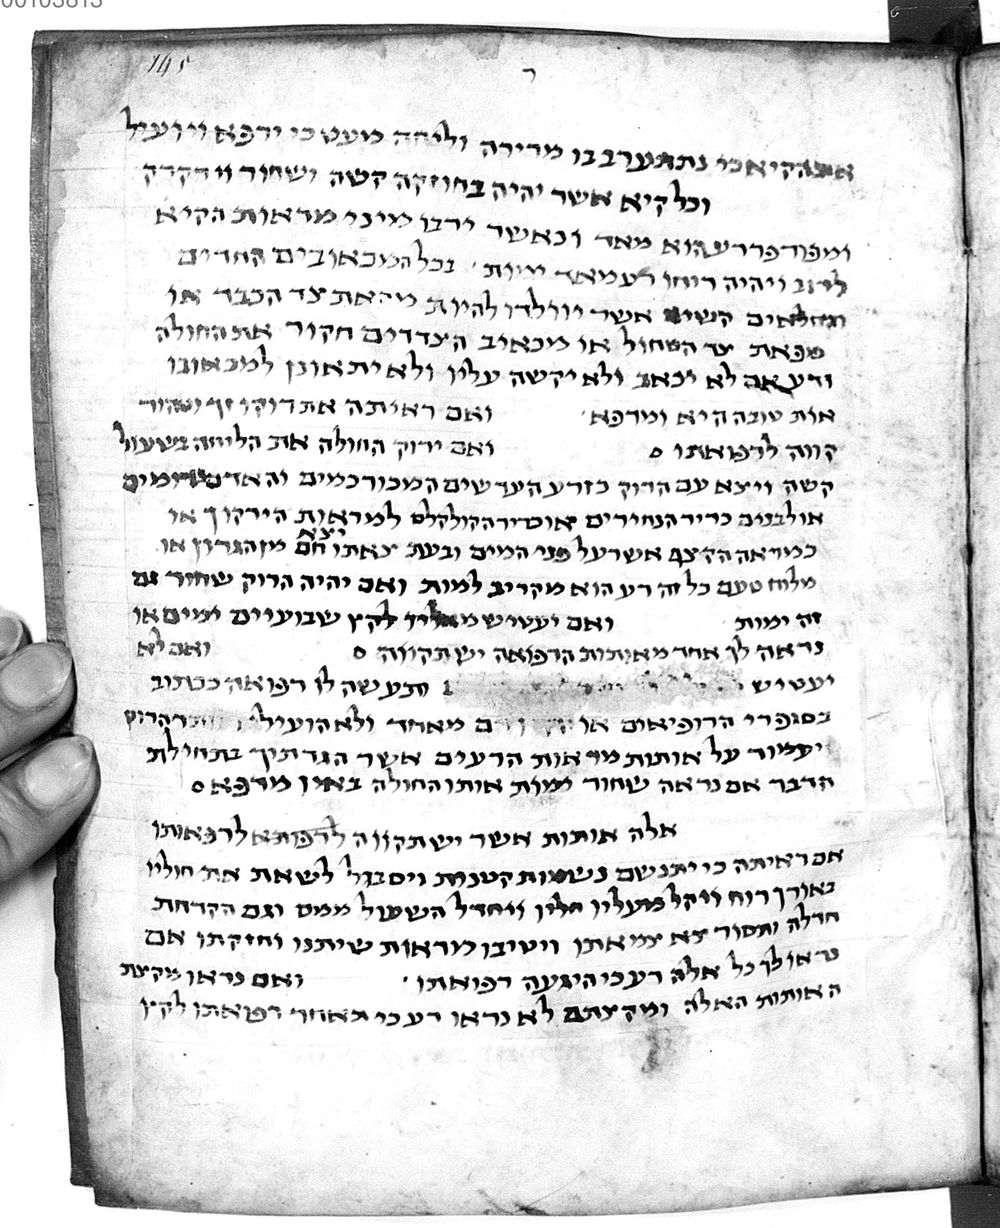 00103813
145
ר
את הקיא כי נתתערב בו מרירה וליחה מעט כי ירפא ויועיל
וכל קיא אשר יהיה בחוזקה קשה ושחור ודקדק
ומפורפר רע הוא מאד וכאשר ירבו מיני מראות הקיא
לרוב ויהיה ריחו רע מאד ימות׳ בכל המכאובים החדים
קשים אשר יוולדו להיות מפאת צד הכבד או
מפאת צד הטחול או מכאוב הצדדים חקור את החולה
ודע אם לא יכאב ולא יקשה עליו ולא יתאונן למכאובו
אות טובה היא ומרפא׳ ואם ראיתה את רוקו זך וטהור
קווה לרפואתו ואם ירוק החולה את הליחה בשעול
קשה ויצא עם הרוק כזרע העדשים המכורכמים והאדמדמים
או לבנים כריר הנחירים או כריר הקולקלס למראות הירקון או
יצא
כמראה הקצף אשר על פני המים ובעת צאתו חם מן הגרון או
מלוח טעם כל זה רע הוא מקריב למות ואם יהיה הרוק שחור גם
זה ימות ואם יעטיש לקץ שבועיים ימים או
נראה לך אחד מאותות הרפואה יש תקווה ואם לא
יעטיש ותעשה לו רפואה ככתוב
בספרי הרופיאים או מאחד ולא הועיל
יעמוד על אותות מראות הרעים אשר הגדתיך בתחילת
הדבר אם נראה שחור ימות אותו החולה באין מרפא
אלה אותות אשר יש תקווה לרפואתו
אם ראיתה כי יתנשם נשמות קטנות ויסבול לשאת את חוליו
באורך רוח ויקל מעליו חליו ויחדל השעול ממנו וגם הקדחת
חדלה ותסור צמאתו ויטיבו מראות שיתנו וחזקתו אם
נראו לך כל אלה דע כי היגעה רפואתו׳ ואם נראו מקצת
האותות האלה ומקצתם לא נראו דע כי תאחר רפואתו לקץ